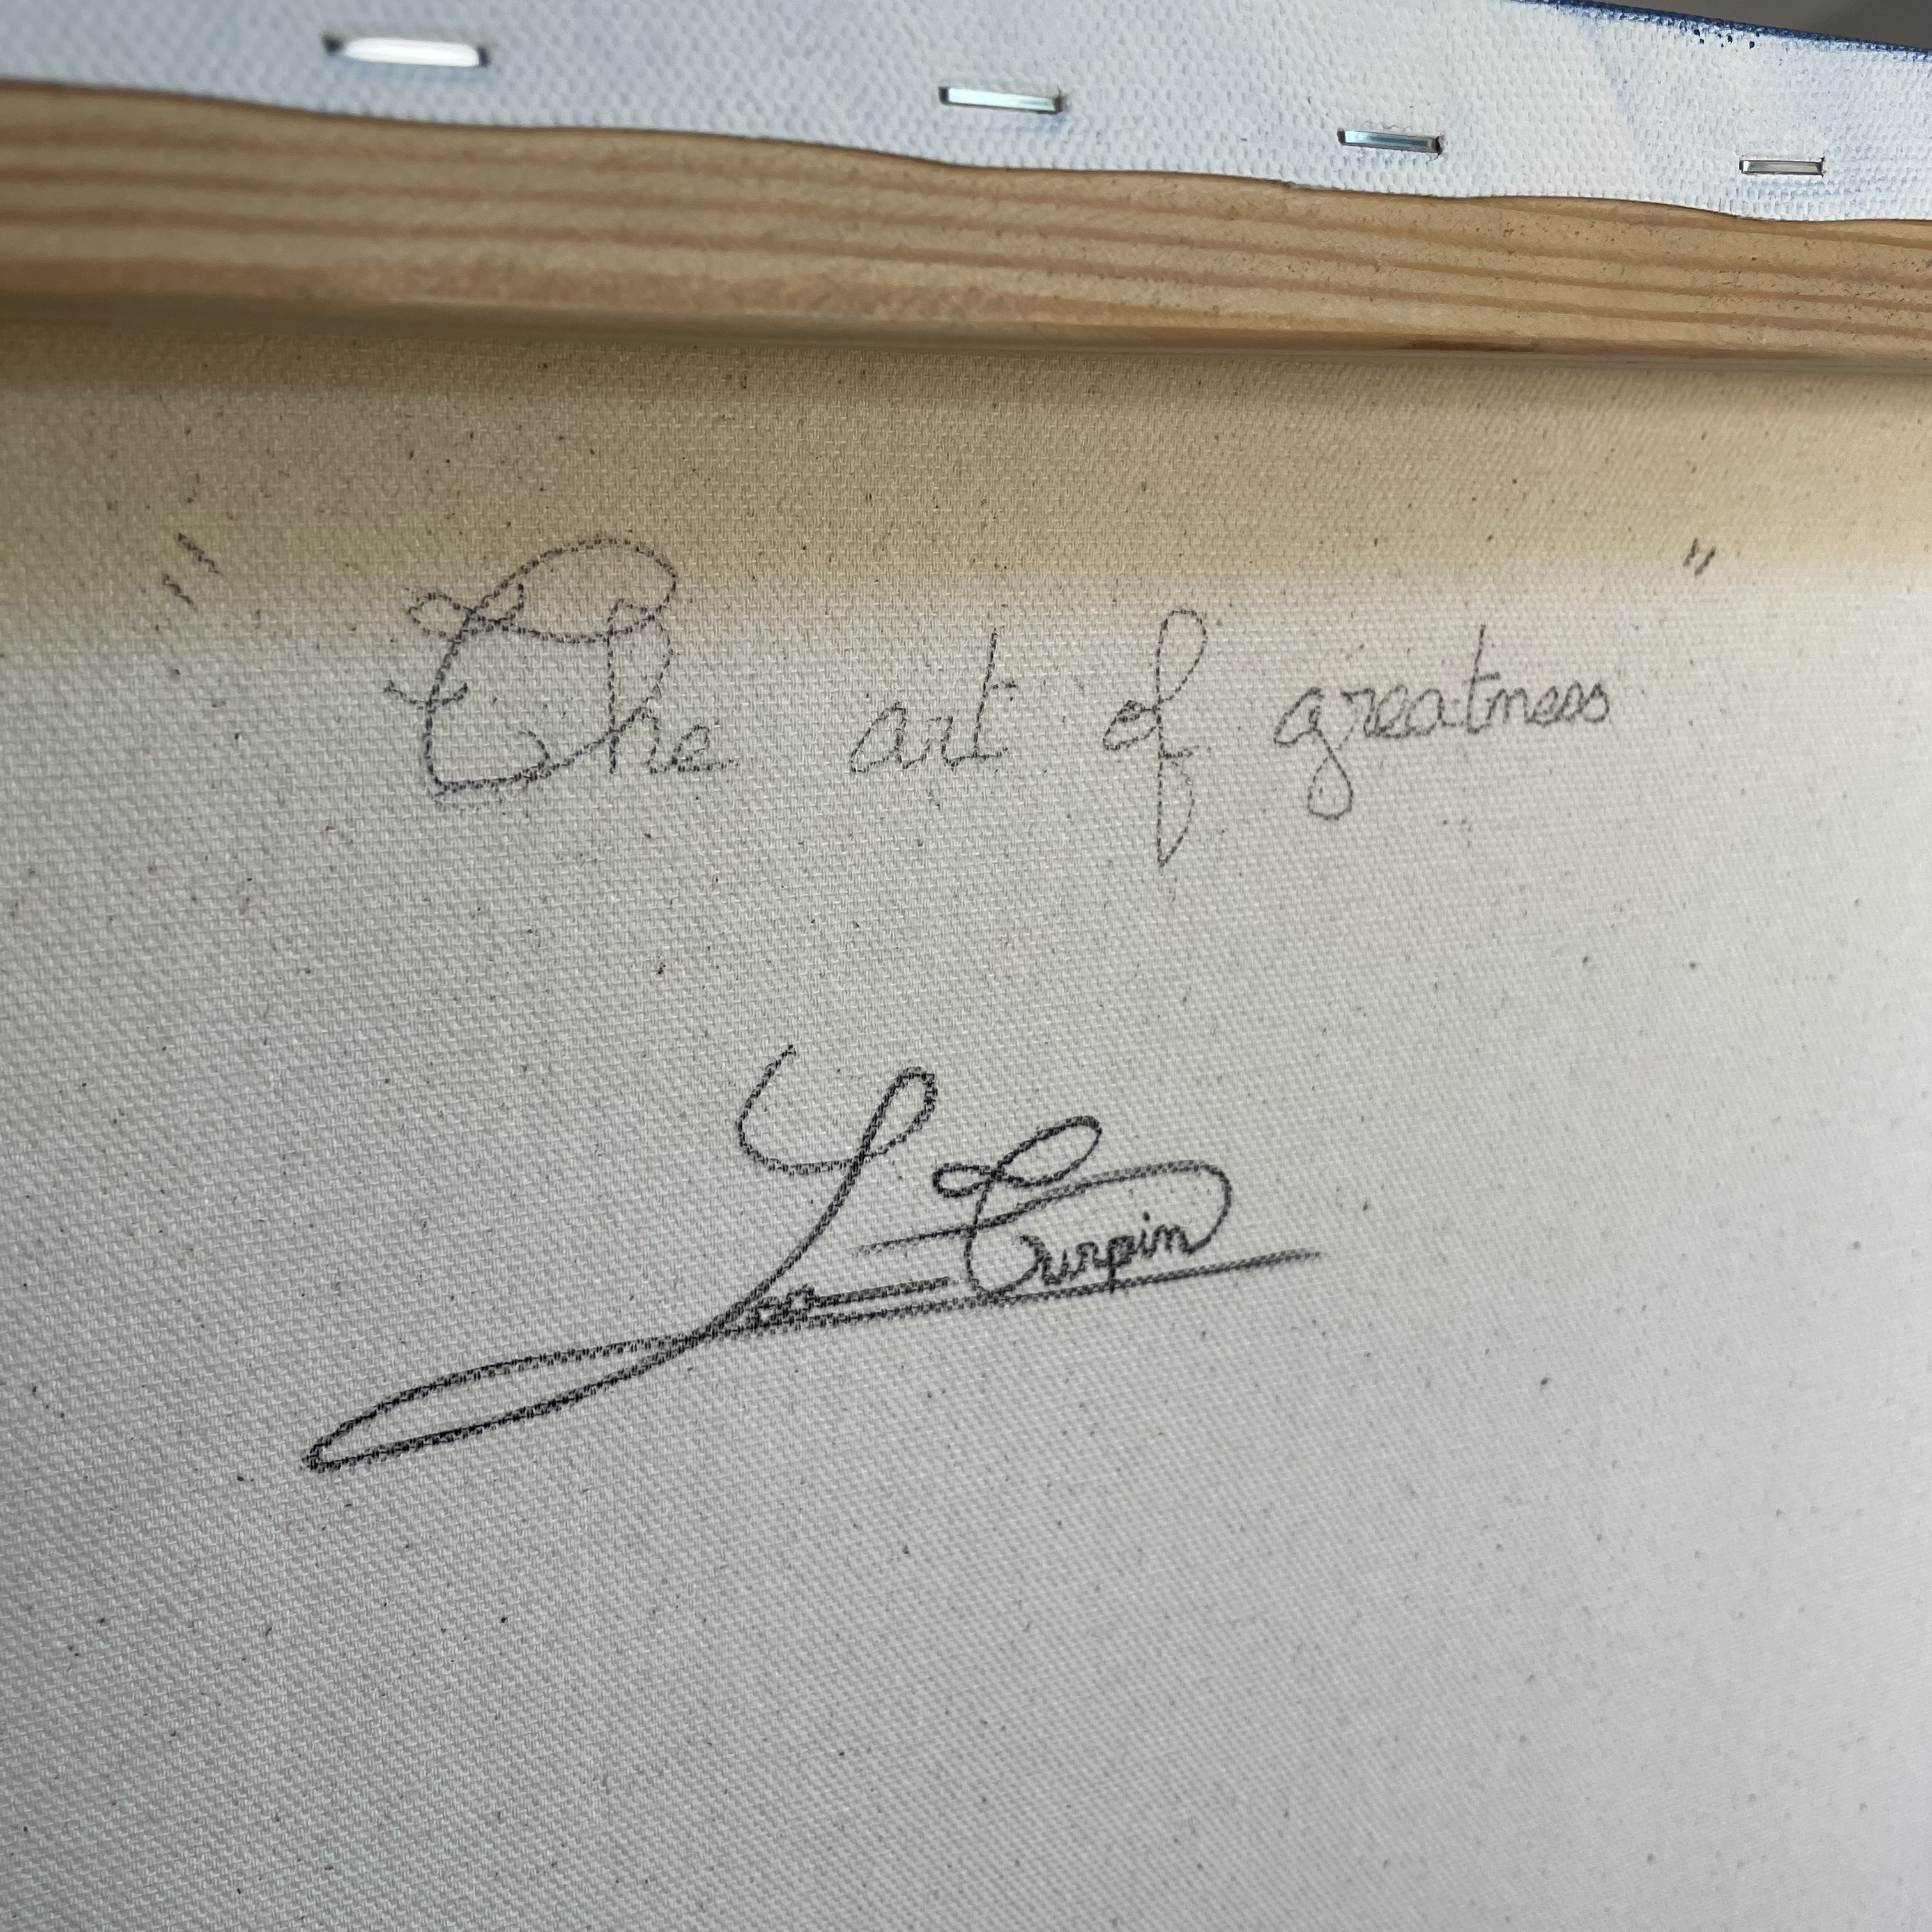 "The art of greatness"
Turpin